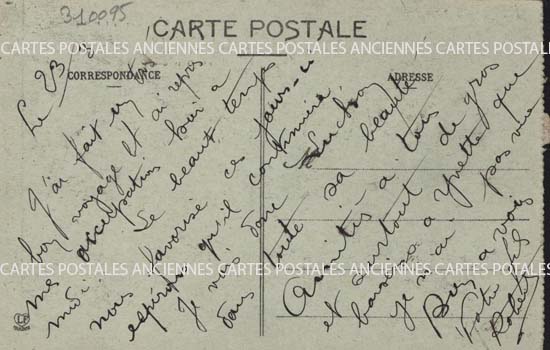 310095
CARTE POSTALE
CARTES POSTALES ANCIENNES CARTES POSTALES ANCIENNES CARTES POSTALES
CORRESPONDANCE
ADRESSE
Le 23
J'ai fait un très
bon voyage et ai repris
mes occupations hier à
midi. Le beau temps
nous favorise ces jours-ci
espérons qu'il continuera.
Je vois donc Luchon
dans toute sa beauté
Amitiés à tous
et surtout de gros
baisers à Yvette que
je n'ai pas vue
Bises à vous
Votre fils
Robert
CARTES POSTALES ANCIENNES CARTES POSTALES ANCIENNES CARTES POSTALES